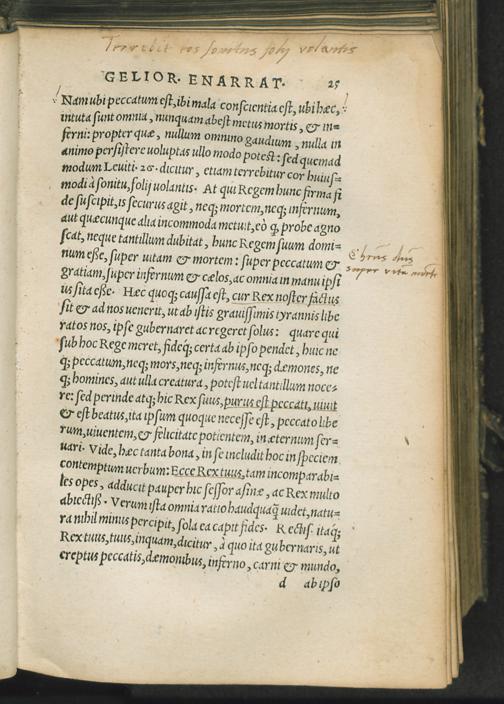 Terrebit eos sonitus folij volantis
GELIOR. ENARRAT. 25
Nam ubi peccatum est, ibi mala conscientia est, ubi hæc,
intuta sunt omnia, nunquam abest metus mortis, & in=
ferni: propter quæ, nullum omnino gaudium, nulla in
animo persistere voluptas ullo modo potest: sed quemad
modum Leuiti. 26. dicitur, etiam terrebitur cor huius=
modi à sonitu, folij uolantis. At qui Regem hunc firma fi
de suscipit, is securus agit, neq; mortem, neq; infernum,
aut quæcunque alia incommoda metuit, eò q̢ probe agno
scat, neque tantillum dubitat, hunc Regem suum domi=
num eße, super uitam & mortem: super peccatum &
gratiam, super infernum & cælos, ac omnia in manu ipsi
us sita eße. Hæc quoq; caussa est, cur Rex noster factus
sit & ad nos uenerit, ut ab istis grauissimis tyrannis libe
ratos nos, ipse gubernaret ac regeret solus: quare qui
sub hoc Rege meret, fideq́; certa ab ipso pendet, huic ne
q; peccatum, neq; mors, neq; infernus, neq; dæmones, ne
q; homines, aut ulla creatura, potest uel tantillum noce=
re: sed perinde atq; hic Rex suus, purus est peccati, uiuit
& est beatus, ita ipsum quoque necesse est, peccato libe
rum, uiuentem, & felicitate potientem, in æternum ser=
uari. Vide, hæc tanta bona, in se includit hoc in speciem
contemptum uerbum: Ecce Rex tuus, tam incomparabi=
les opes, adducit pauper hic sessor asinæ, ac Rex multo
abiectiß. Verum ista omnia ratio haudquaq̃ uidet, natu=
ra nihil minus percipit, sola ea capit fides. Rectiß. itaq;
Rex tuus, tuus, inquam, dicitur, à quo ita gubernaris, ut
ereptus peccatis, dæmonibus, inferno, carni & mundo,
d ab ipso
super vita